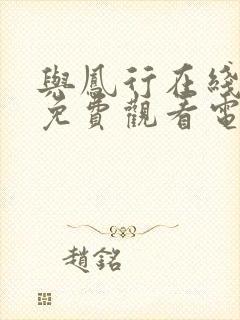 與鳳行在綫
免費觀看電
趙銘